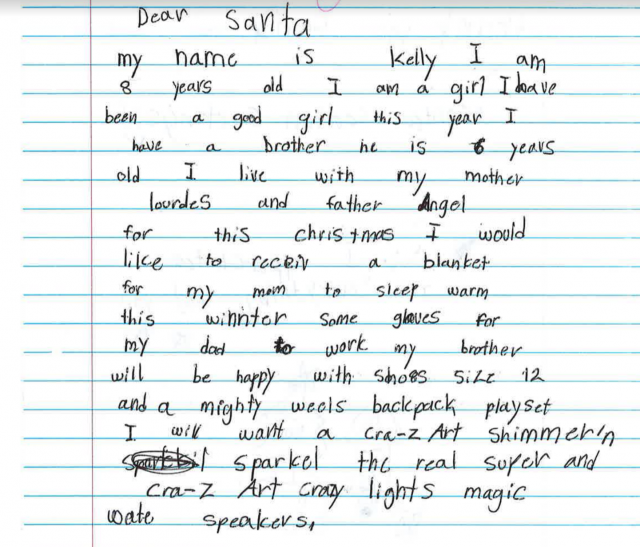 Dear Santa
my name is Kelly I am
8 years old I am a girl I have
been a good girl this year I
have a brother he is 6 years
old I live with my mother
lourdes and father Angel
for this christmas I would
like to receiv a blanket
for my mom to sleep warm
this winntor some gloves for
my dad to work my brother
will be happy with shoes size 12
and a mighty weels backpack playset
I will want a cra-z Art shimmer'n
sparkel the real super and
cra-z Art crazy lights magic
wate speakers,